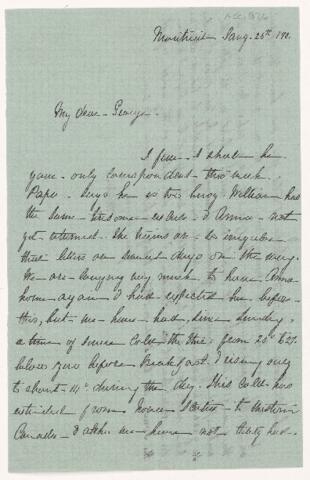 Montreal Jany. 25th
My dear George
I fear I shall be
your only correspondent this week.
Papa says he is too busy. William has
the same tiresome excuse & Annie not
yet returned. The trains are so irregular
three letters are several days on the way.
We are longing very much to have Annie
home again I had expected her before
this, but we have had since Sunday,
a term of severe cold, the ther. from 20° to 27°
below zero before breakfast & rising only
to about 14° during the day. This cold has
extended from Nova Scotia to Western
Canada & altho' we have not that had